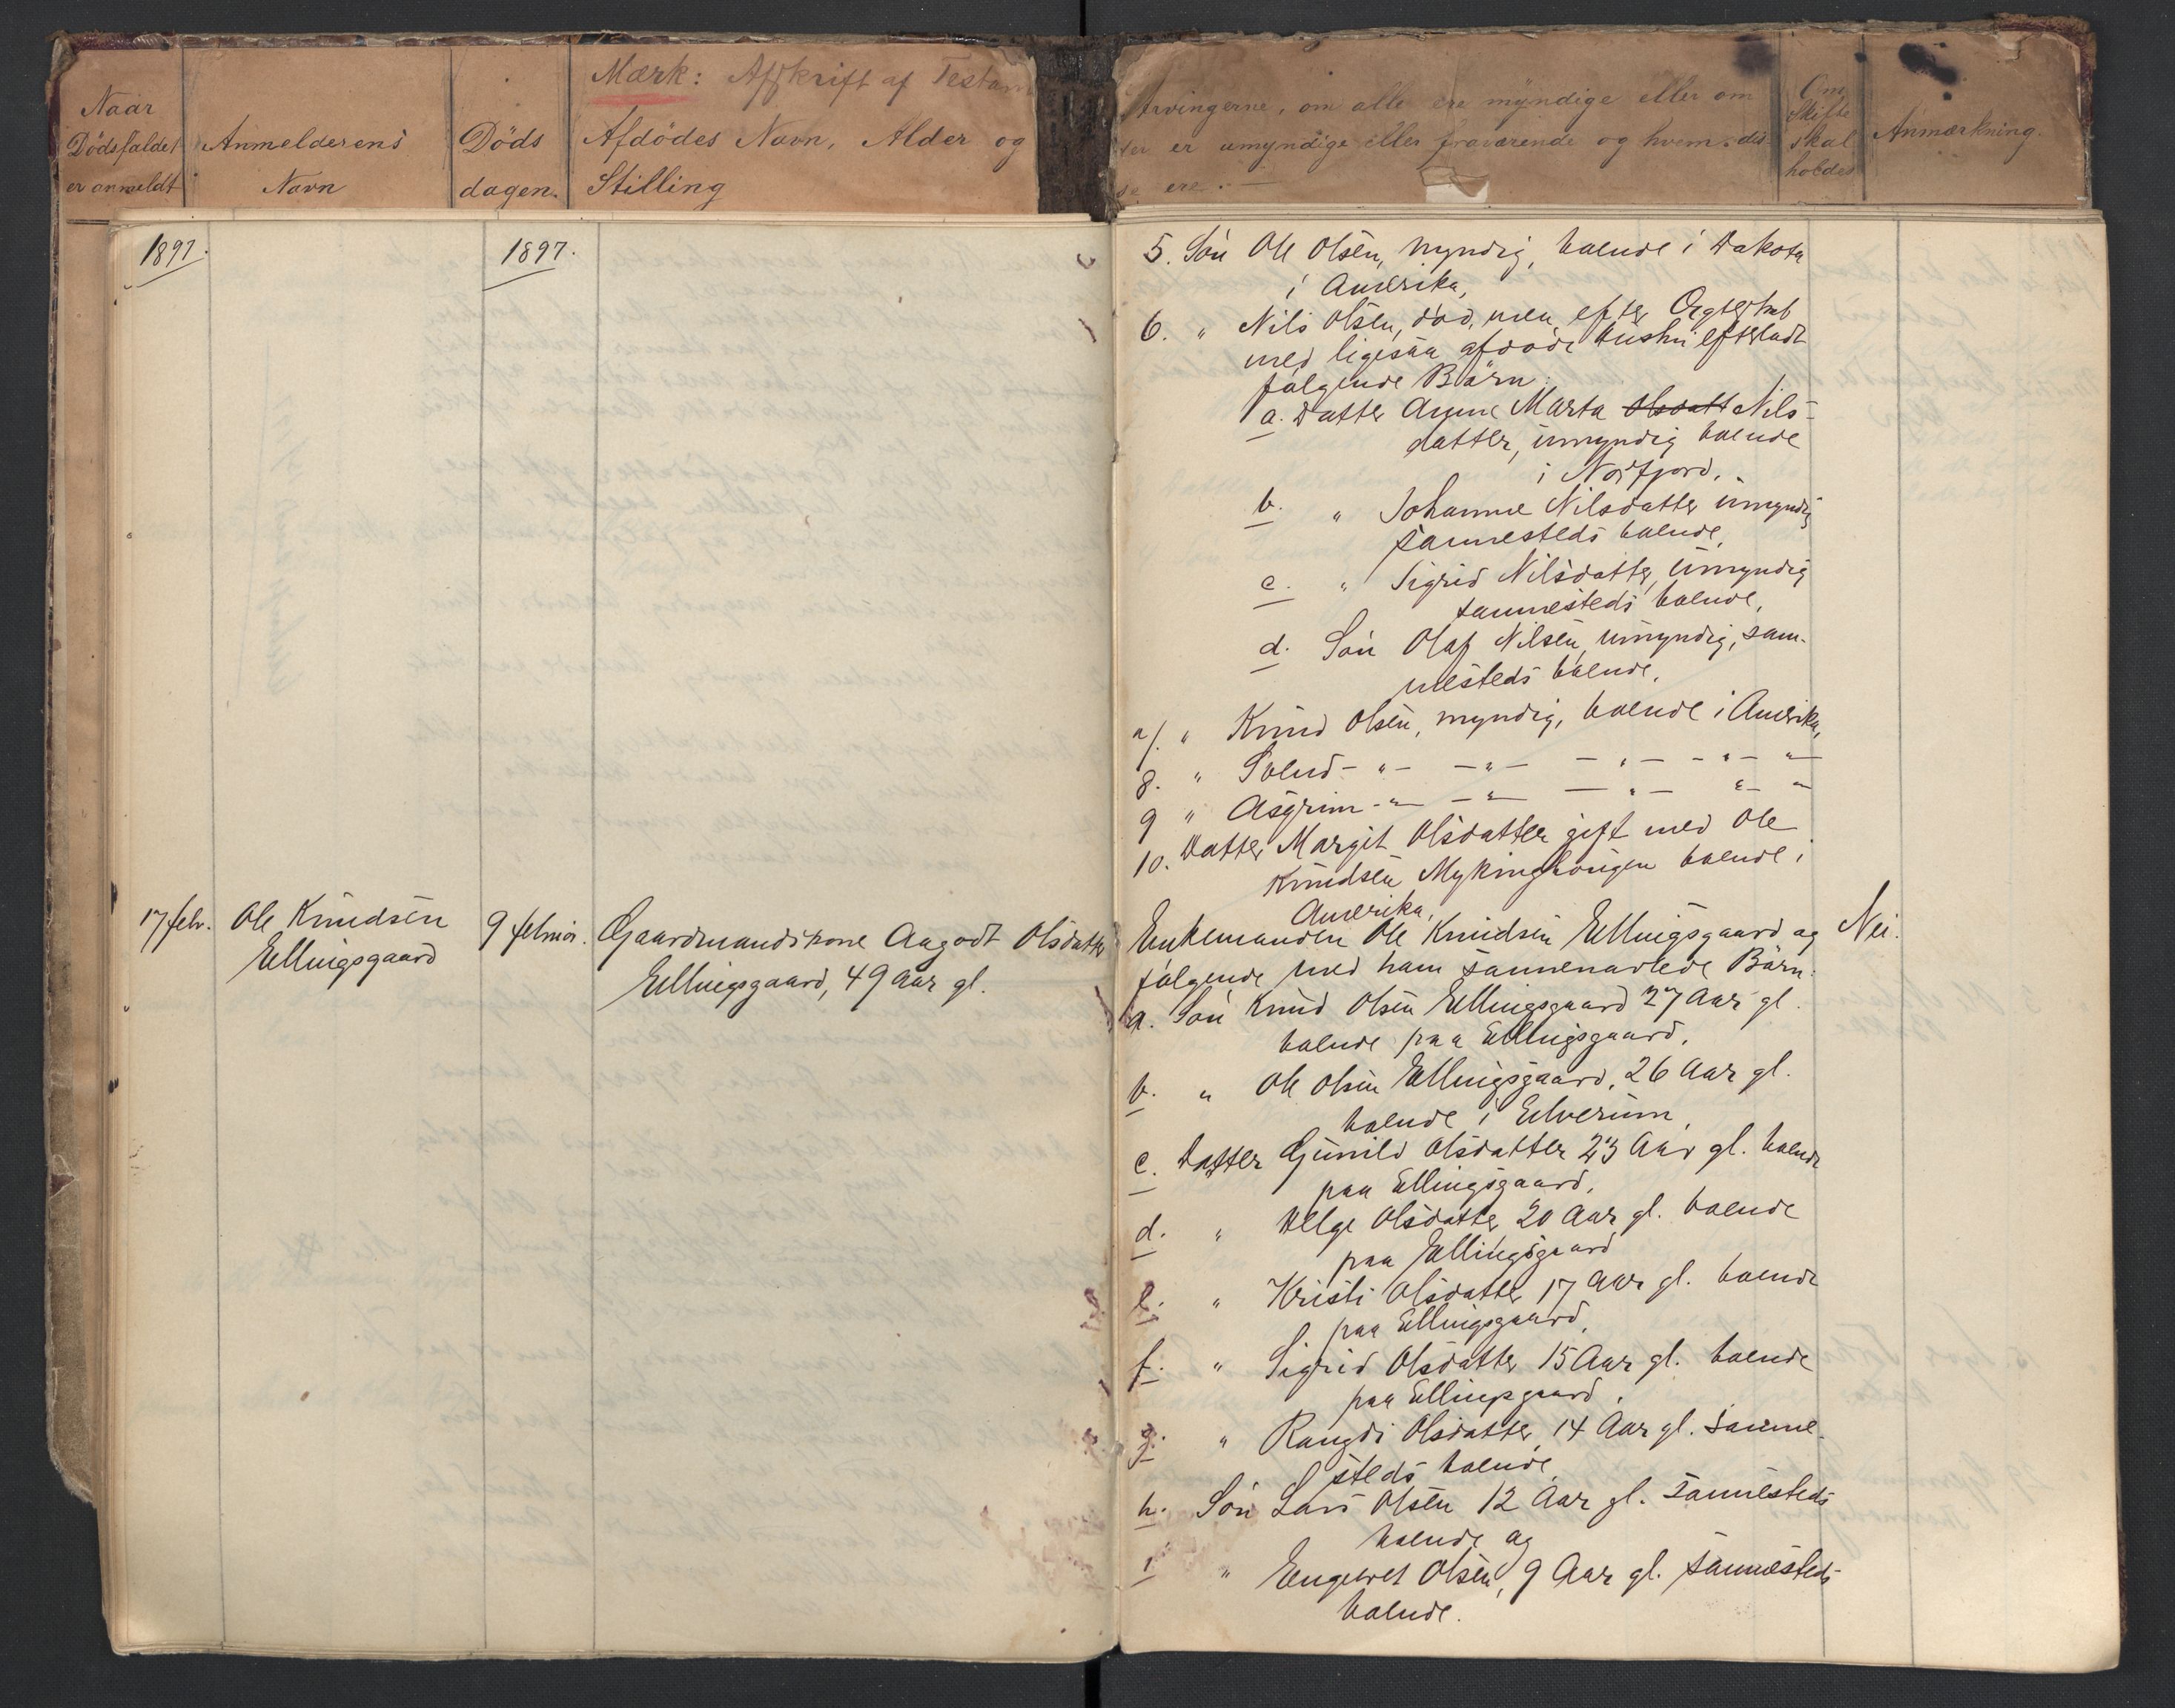 Mærk: Afskrift af Testam
Naar
Dödsfaldet
er anmeldt
Anmelderens
Navn
Döds
dagen.
Afdödes Navn, Alder og
Stilling
Arvingerne, om alle ere myndige eller om
er umyndige eller fraværende og hvem dis-
se ere.
Om
Skifte
skal
holdes
Anmærkning.
1897.
1897.
5. Søn Ole Olsen, myndig, boende i Dakota
i Amerika,
6. " Nils Olsen, død, men efter Ægteskab
med ligesaa afdøde Hustru efterladt
følgende Børn:
a. Datter Anne Marta Olsdatt Nils-
datter, umyndig boende
i Norfjord.
b. " Johanne Nilsdatter umyndig
sammesteds boende,
c. " Sigrid Nilsdatter, umyndig
sammesteds boende,
d. Søn Olaf Nilsen, umyndig, sam-
mesteds boende,
7. " Knud Olsen, myndig, boende i Amerika,
8. " Svend - " - - " - - " - - " - "
9 " Asgrim - " - " - " - " - "
10. Datter Margit Olsdatter gift med Ole
Knudsen Mykinghougen boende i
Amerika,
17 febr.
Ole Knudsen
Ellingsgaard
9 februar.
Gaardmandskone Aagodt Olsdatter
Ellingsgaard, 49 aar gl.
Enkemanden Ole Knudsen Ellingsgaard og
følgende med ham sammenavlede Børn:
Nei.
a. Søn Knud Olsen Ellingsgaard 27 Aar gl.
boende paa Ellingsgaard,
b. " Ole Olsen Ellingsgaard, 26 Aar gl.
boende i Elverum,
c. Datter Gunild Olsdatter 23 Aar gl. boende
paa Ellingsgaard,
d. " Helge Olsdatter 20 Aar gl. boende
paa Ellingsgaard
e. " Kristi Olsdatter 17 Aar gl. boende
paa Ellingsgaard,
f. " Sigrid Olsdatter 15 Aar gl. boende
paa Ellingsgaard,
g. " Rangdi Olsdatter, 14 Aar gl. samme-
steds boende,
h. Søn Lars Olsen 12 Aar gl. sammesteds
boende og
i " Engebret Olsen, 9 Aar gl. sammesteds
boende.